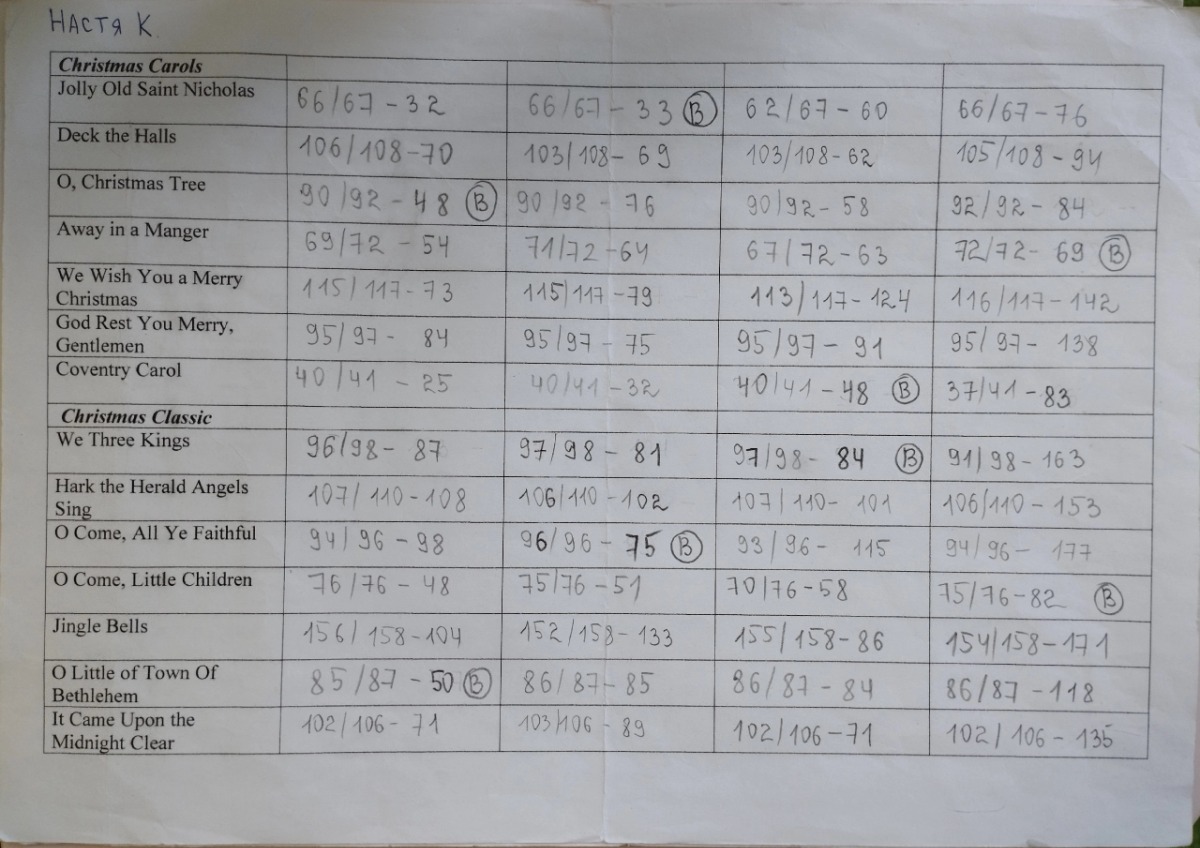 НАСТЯ К.
Christmas Carols
Jolly Old Saint Nicholas 66/67 - 32 66/67 - 33 B 62/67 - 60 66/67 - 76
Deck the Halls 106/108 - 70 103/108 - 69 103/108 - 62 105/108 - 94
O, Christmas Tree 90/92 - 48 B 90/92 - 76 90/92 - 58 92/92 - 84
Away in a Manger 69/72 - 54 71/72 - 64 67/72 - 63 72/72 - 69 B
We Wish You a Merry
Christmas 115/117 - 73 115/117 - 79 113/117 - 124 116/117 - 142
God Rest You Merry,
Gentlemen 95/97 - 84 95/97 - 75 95/97 - 91 95/97 - 138
Coventry Carol 40/41 - 25 40/41 - 32 40/41 - 48 B 37/41 - 83
Christmas Classic
We Three Kings 96/98 - 87 97/98 - 81 97/98 - 84 B 91/98 - 163
Hark the Herald Angels
Sing 107/110 - 108 106/110 - 102 107/110 - 101 106/110 - 153
O Come, All Ye Faithful 94/96 - 98 96/96 - 75 B 93/96 - 115 94/96 - 177
O Come, Little Children 76/76 - 48 75/76 - 51 70/76 - 58 75/76 - 82 B
Jingle Bells 156/158 - 104 152/158 - 133 155/158 - 86 154/158 - 171
O Little of Town Of
Bethlehem 85/87 - 50 B 86/87 - 85 86/87 - 84 86/87 - 118
It Came Upon the
Midnight Clear 102/106 - 71 103/106 - 89 102/106 - 71 102/106 - 135